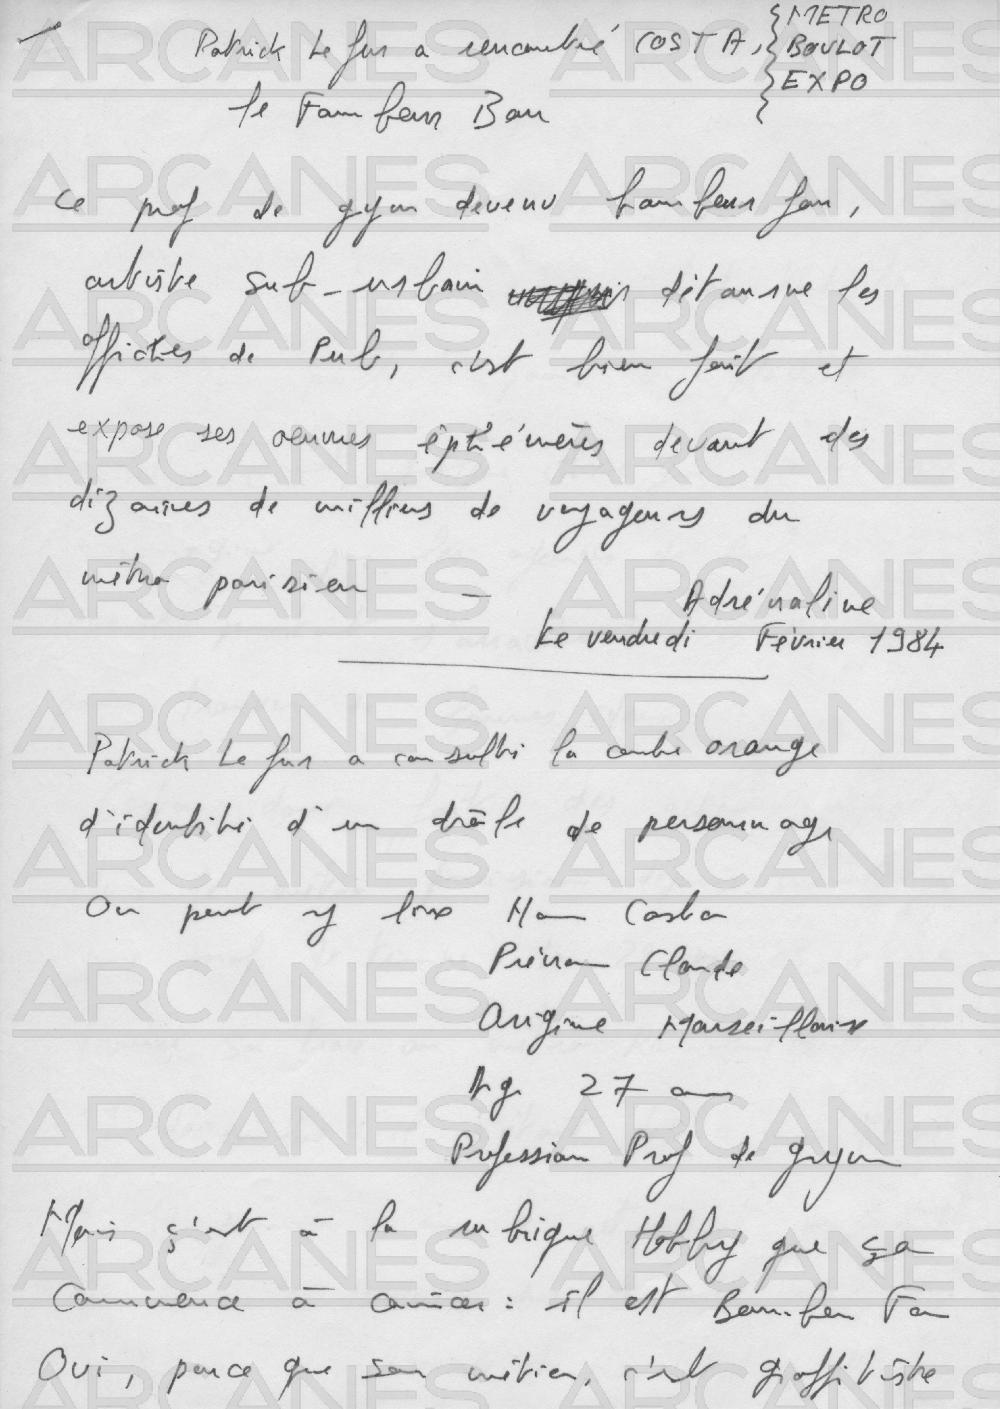 Patrick Le Fur a rencontré COSTA, { METRO
BOULOT
EXPO
le Fou beur Bou
Ce prof de gym devenu bombeur fou,
artiste sub-urbain détourne les
affiches de Pub, c'est bien fait et
expose ses oeuvres éphémères devant des
dizaines de milliers de voyageurs du
métro parisien —
Adrénaline
Le vendredi Février 1984
Patrick Le Fur a consulté la carte orange
d'identité d'un drôle de personnage
On peut y lire Nom Costa
Prénom Claude
Origine Marseillaise
Age 27 ans
Profession Prof de gym
Mais ç'est à la rubrique Hobby que ça
Commence à coincer : il est Bombeur Fou
Oui, parce que son métier, c'est graffitiste
ARCANES